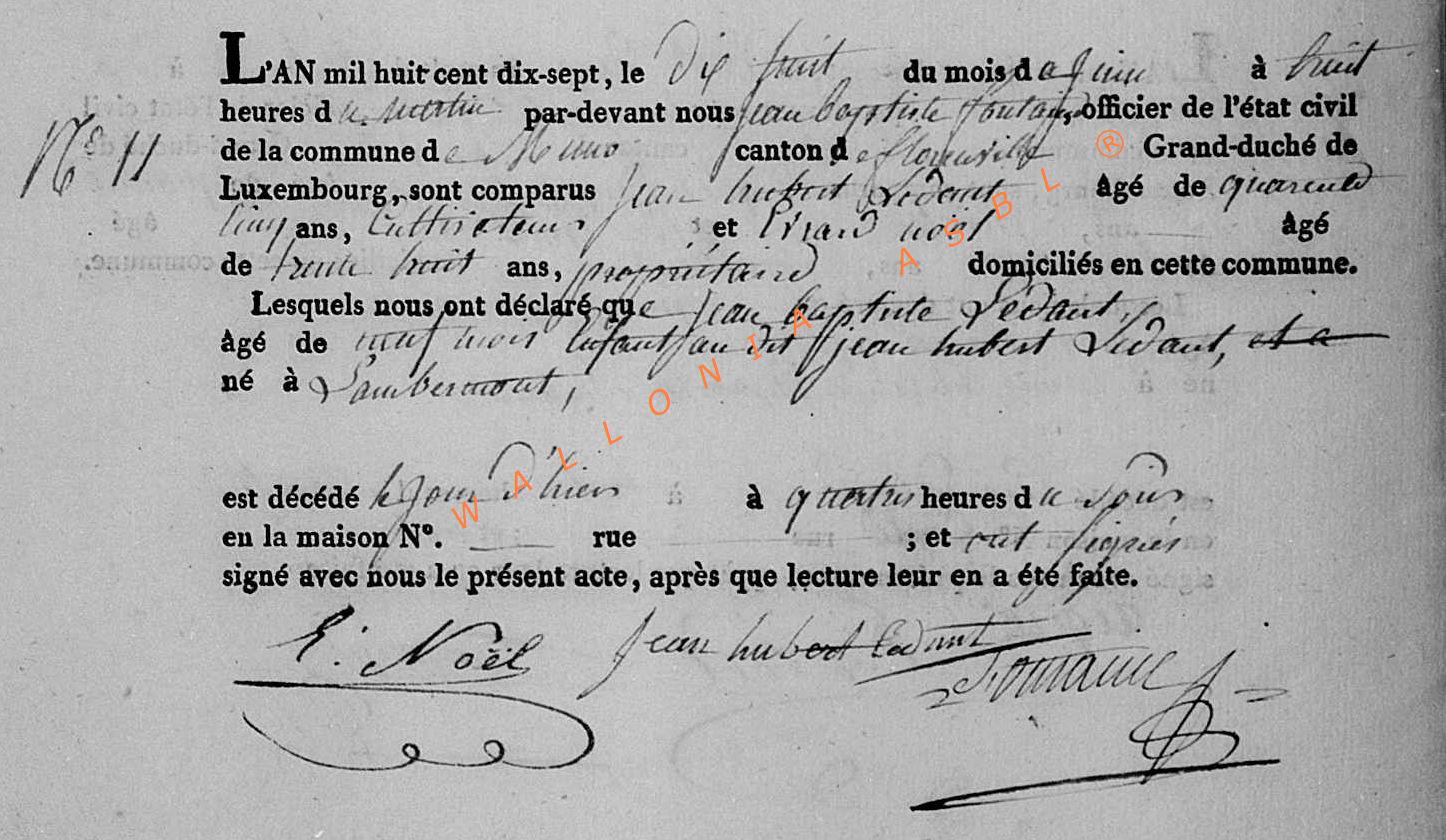 L'AN mil huit cent dix-sept, le dix huit du mois de juin à huit
N° 11
heures du matin par-devant nous jean baptiste fontaine, officier de l'état civil
de la commune de Muno canton de florenville Grand-duché de
Luxembourg, sont comparus jean hubert Ledant âgé de quarente
cinq ans, Cultivateur et Erard noël âgé
de trente huit ans, propriétaire domiciliés en cette commune.
Lesquels nous ont déclaré que jean baptiste Ledant,
âgé de neuf mois Enfant au dit jean hubert Ledant, et a
né à Lambermont,
est décédé le jour d'hier à quatre heures du soir
en la maison N°. rue ; et ont signés
signé avec nous le présent acte, après que lecture leur en a été faite.
E. Noël jean hubert Ledant Fontaine
WALLONIA ASBL ®